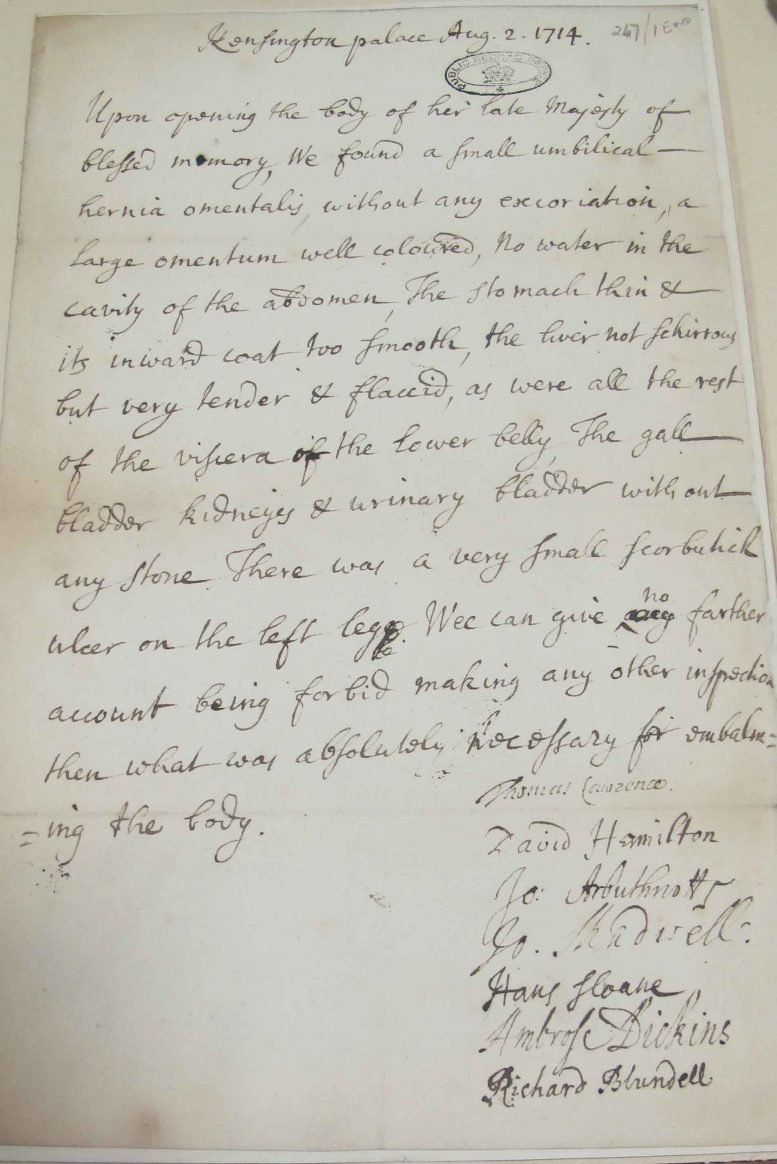 Kensington palace Aug. 2. 1714.
247/1
PUBLIC RECORD OFFICE
Upon opening the body of her late Majesty of
blessed memory, We found a small umbilical
hernia omentalis, without any excoriation, a
large omentum well coloured, No water in the
cavity of the abdomen, The stomach thin &
its inward coat too smooth, the liver not schirrous
but very tender & flaccid, as were all the rest
of the viscera of the lower belly, The gall
bladder kidneys & urinary bladder without
any stone. There was a very small scorbutick
ulcer on the left legg. Wee can give no farther
account being forbid making any other inspection
then what was absolutely necessary for embalm=
=ing the body.
Thomas Lawrence.
David Hamilton
Jo: Arbuthnott
Jo. Shadwell.
Hans Sloane
Ambrose Dickins
Richard Blundell